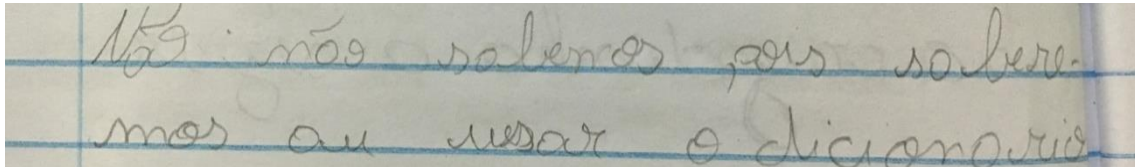 Não não sabemos, pois sabere-
mos ou usar o dicionario